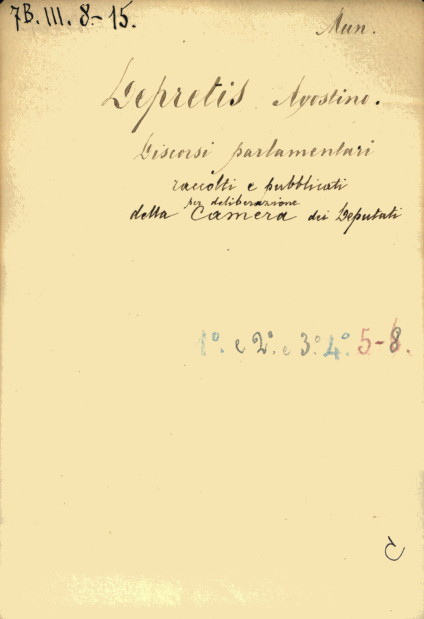 7B. III. 8-15.
Mun.
Depretis Agostino.
Discorsi parlamentari
raccolti e pubblicati
per deliberazione
della Camera dei Deputati
1º. e 2º. e 3º. 4º. 5-8.